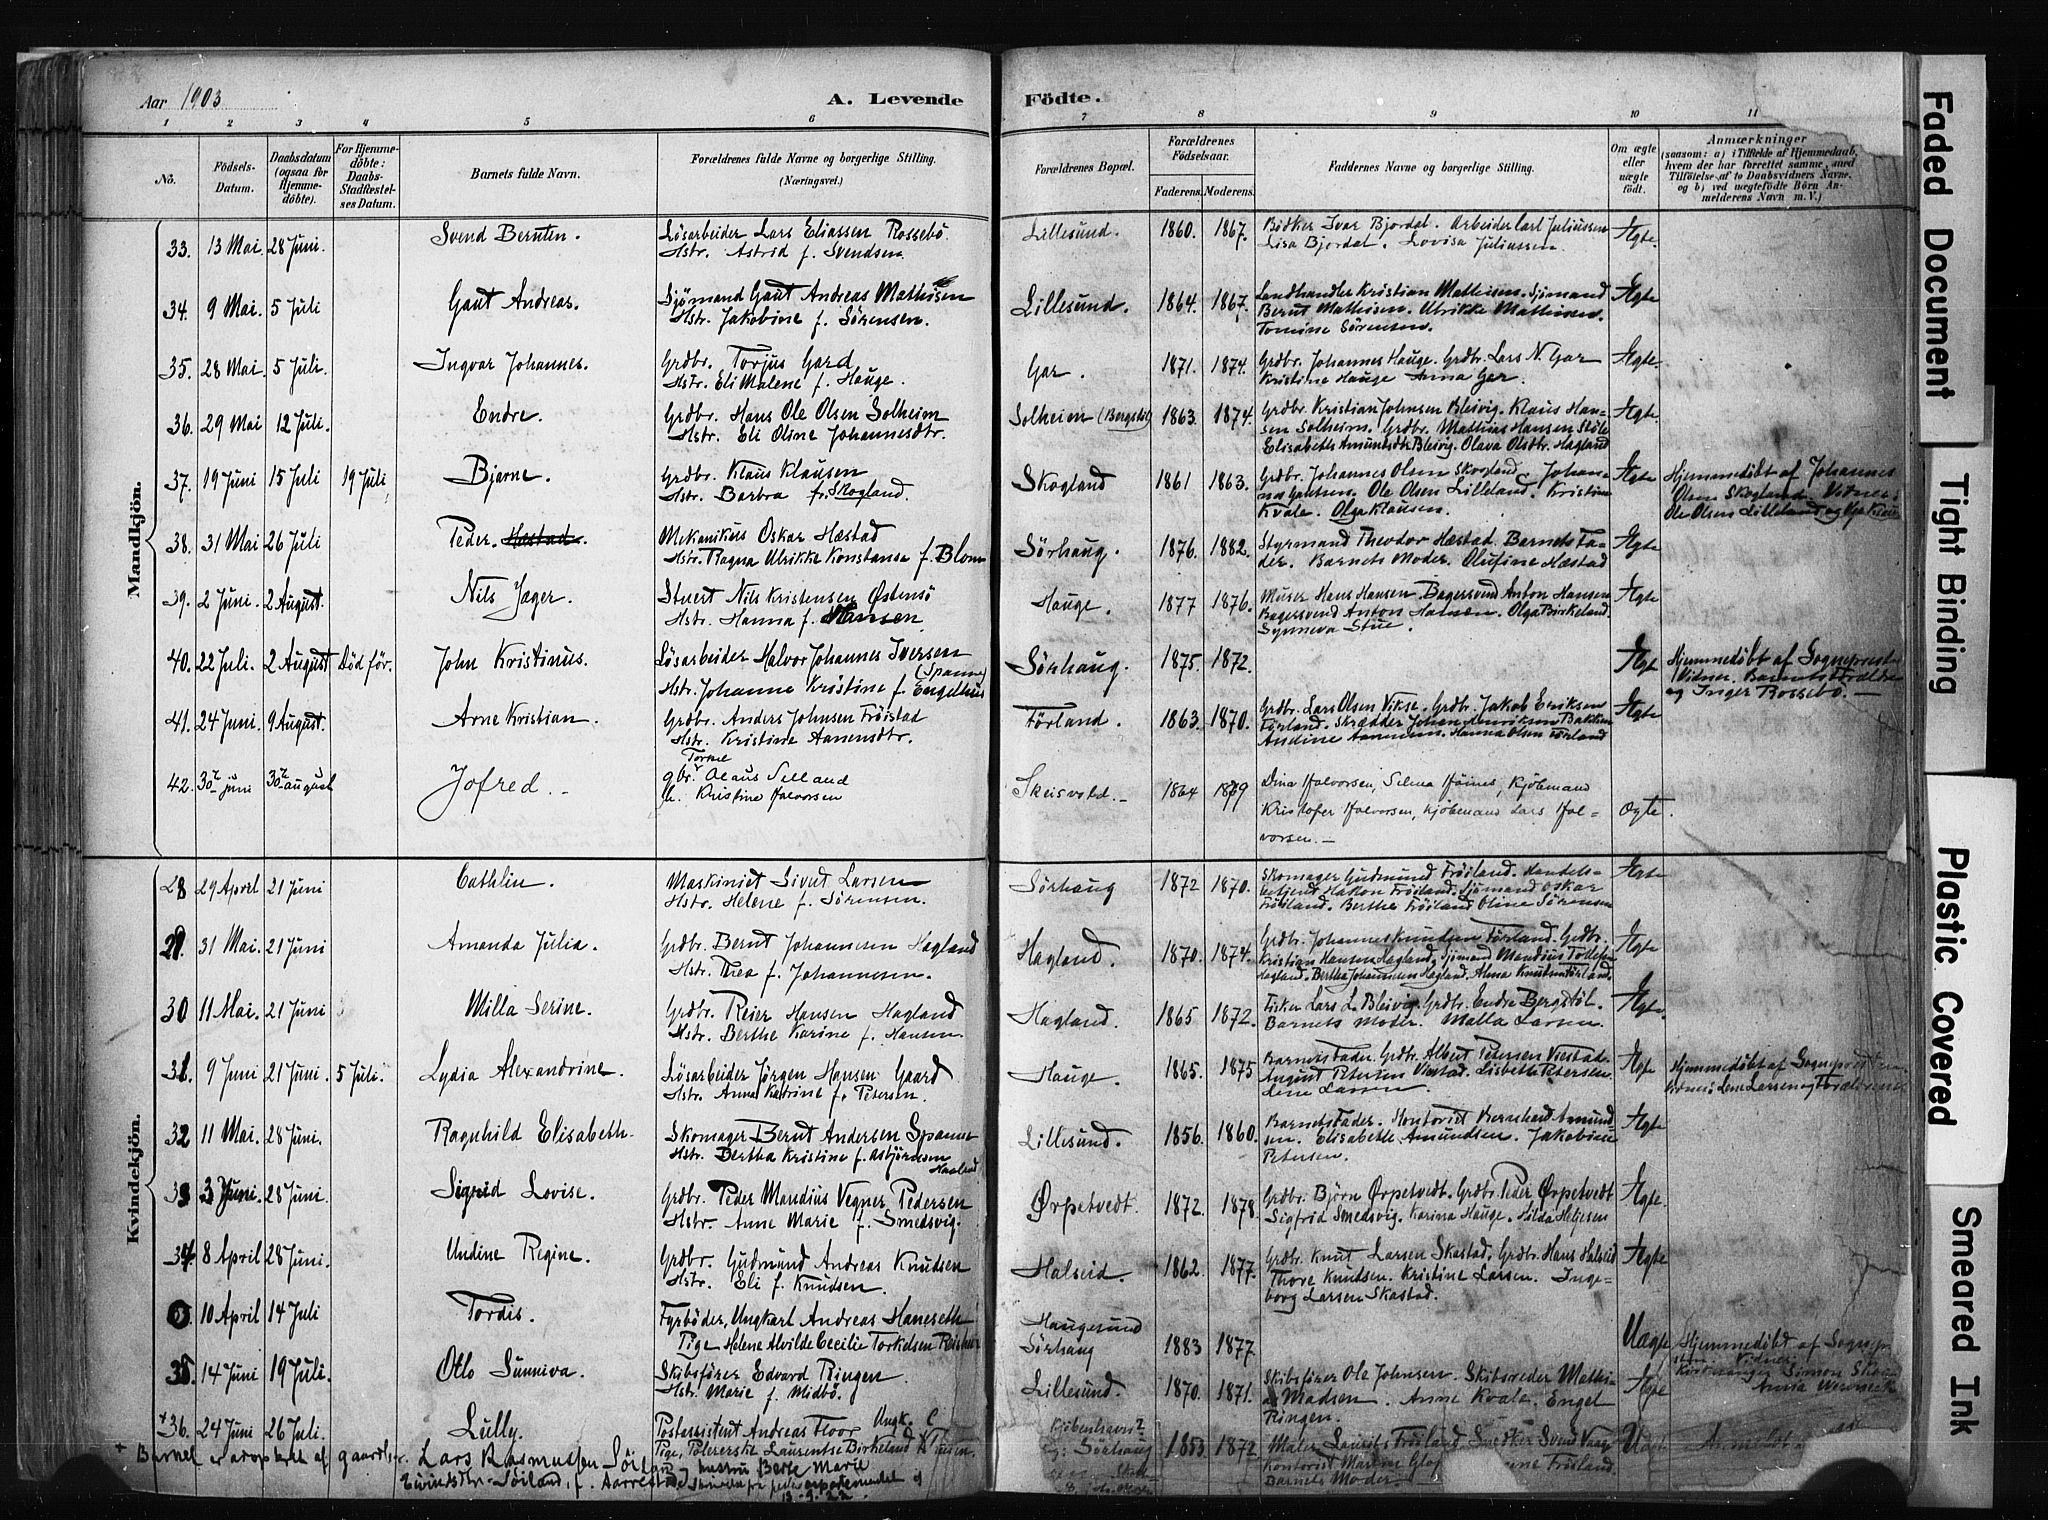 Aar 1903
A. Levende Födte.
1 2 3 4 5 6 7 8 9 10 11
No.
Födsels-Datum.
Daabsdatum (ogsaa for Hjemmedöbte).
For Hjemmedöbte: Daabs-Stadfæstelses Datum.
Barnets fulde Navn.
Forældrenes fulde Navne og borgerlige Stilling. (Næringsvei.)
Forældrenes Bopæl.
Forældrenes Födselsaar.
Faderens. Moderens.
Faddernes Navne og borgerlige Stilling.
Om ægte eller uægte födt.
Anmærkninger
(saasom: a) i Tilfælde af Hjemmedaab, hvem der har forrettet samme, med Tilföielse af to Daabsvidners Navne, og b) ved uægtefödte Börn Anmelderens Navn m. V.)
Mandkjön.
33. 13 Mai 28 Juni. Svend Berntin. Løsarbeider Lars Eliassen Rossebö Lillesund. 1860. 1867. Bödker Ivar Bjordal. Arbeider Carl Juliussen Ægte.
Hstr. Astrid f. Svendsen. Lisa Bjordal. Lovisa Juliassen.
34. 9 Mai. 5 Juli Gaut Andreas. Sjømand Gaut Andreas Mathisen Lillesund. 1864. 1867. Landhandler Kristian Mathisen. Sjömand Ægte
Hstr. Jakobine f. Sørensen. Bernt Mathisen. Ulrikke Mathisen.
Tomine Sörensen.
35. 28 Mai. 5 Juli. Ingvar Johannes. Grdbr. Torjus Gard Gar. 1871. 1874. Grdbr. Johannes Hauge. Grdbr. Lars N. Gar Ægte.
Hstr. Eli Malene f. Hauge. Kristine Hauge Anna Gar.
36. 29 Mai 12 Juli. Endre. Grdbr. Hans Ole Olsen Solheim Solheim (Bergstöl) 1863. 1874. Grdbr. Kristian Johnsen Bleivig. Klaus Han- Ægte.
Hstr. Eli Oline Johannesdtr. sen Solheim. Grdbr. Mathias Hansen Støle
Elisabeth Amundsdtr. Bleivig. Olava Olsdtr. Hagland
37. 19 Juni 15 Juli 19 Juli Bjarne. Grdbr. Klaus Klausen Skogland 1861 1863. Grdbr. Johannes Olsen Skogland. Johan- Ægte Hjemmedöbt af Johannes
Hstr. Barbra f. Skogland. nes Gautsen. Ole Olsen Lilleland. Kristine Olsen Skogland. Vidner:
Kvale. Olga Klausen. Ole Olsen Lilleland og
38. 31 Mai 26 Juli Peder. Mekanikus Oskar Hæstad Sørhaug. 1876. 1882. Styrmand Theodor Hæstad. Barnets Fa- Ægte
Hstr. Ragna Ulrikke Konstanse f. Blom der. Barnets Moder. Olufine Hæstad
39. 2 Juni. 2 August. Nils Jager. Stuert Nils Kristensen Østensö Hauge. 1877 1876. Murer Hans Hansen. Bagersvend Anton Hansen Ægte
Hstr. Hanna f. Hansen. Bagersvend Anton Hansen. Olga Birkeland.
Synneva Stue.
40. 22 Juli. 2 August Død för. John Kristinus. Løsarbeider Halvor Johannes Iversen Sørhaug. 1875. 1872. Ægte Hjemmedöbt af Sogneprest
(Spanne) Vidner. Barnets Forældre
Hstr. Johanna Kristine f. Engelhus og Inger Rossebö.
41. 24 Juni. 9 August. Arne Kristian. Grdbr. Anders Johnsen Fröistad Förland. 1863. 1870. Grdbr. Lars Olsen Vikse. Grdbr. Jakob Eriksen Ægte
Hstr. Kristine Aanensdtr. Förland. Skrædder Johan Henriksen Bakken
Andine Aanensen. Hanna Olsen Förland
42. 30te juni 30te august Jofred. gbr. Olaus Selland Skeisvold. 1864 1879 Dina Halvorsen, Selma Höines, Kjöbmand
h. Kristine Halvorsen Kristofer Halvorsen, Kjöbmand Lars Hal- ægte.
vorsen.
Kvindekjön.
28 29 April 21 Juni Cathlin. Maskinist Sivert Larsen Sørhaug 1872 1870. Skomager Gudmund Fröiland. Handels- Ægte
Hstr. Helene f. Sørensen. betjent Hakon Fröiland. Sjömand Oskar
Fröiland. Berthe Fröiland Oline Sörensen
29. 31 Mai. 21 Juni Amanda Julia. Grdbr. Bernt Johannesen Hagland Hagland. 1870. 1874. Grdbr. Johannes Knudsen Förland. Grdbr. Ægte
Hstr. Thea f. Johannesen. Kristian Hansen Hagland. Sjömand Mandius Tollefsen
Hagland. Bertha Johannesen Hagland. Alma Knudsen Förland.
30 11 Mai. 21 Juni Milla Serine. Grdbr. Reier Hansen Hagland Hagland. 1865 1872. Fisker Lars L. Bleivig. Grdbr. Endre Bergstöl. Ægte.
Hstr. Berthe Karine f. Hansen Barnets Moder. Malla Larsen.
31. 9 Juni 21 Juni. 5 Juli. Lydia Alexandrine. Løsarbeider Jörgen Hansen Gaard Hauge. 1865. 1875 Barnets Fader. Grdbr. Albert Petersen Viestad Ægte Hjemmedöbt af Sogneprest
Hstr. Anna Katrine f. Petersen. August Petersen Viestad. Lisbeth Petersen. Vidner: Lene Larsen og Forældrene
Lene Larsen
32 11 Mai. 28 Juni. Ragnhild Elisabeth. Skomager Bernt Andersen Spanne Lillesund. 1856. 1860. Barnets Fader. Kontorist Bernhard Amund- Ægte
Hstr. Bertha Kristine f. Asbjörnsen sen. Elisabeth Amundsen. Jakobine
Hagland Petersen.
33 3 Juni. 28 Juni. Sigrid Lovise. Grdbr. Peder Mandius Vegner Pedersen Ørpetvedt. 1872. 1878. Grdbr. Björn Ørpetvedt. Grdbr. Peder Ørpetvedt Ægte.
Hstr. Anne Marie f. Smedsvig. Sigfrid Smedsvig. Karina Hauge. Hilda Heljesen
34. 8 April 28 Juni. Undine Regine. Grdbr. Gudmund Andreas Knudsen Halseid. 1862. 1877. Grdbr. Knut Larsen Skastad. Grdbr. Hans Halseid Ægte
Hstr. Eli f. Knudsen. Thore Knudsen. Kristine Larsen. Inge-
borg Larsen Skastad.
10 April 14 Juli Tordis. Fyrböder, Ungkarl Andreas Haneseth Haugesund Uægte Hjemmedöbt af Sognepr
Pige Helene Alvilde Cecilie Torkelsen Sørhaug 1883 1877 Vidner
35. 14 Juni 19 Juli. Otto Sunniva. Skibsfører Edvard Ringen Lillesund. 1870. 1871. Skibsfører Ole Johnsen. Skibsreder Mathi- Ægte Simon
Hstr. Marie f. Midbö. as Madsen. Anne Kvale. Engel Anna
Ringen.
+36. 24 Juni 26 Juli. Lully. Postassistent Andreas Floor Ungk. Kjöbenhavn? 1853 1872 Maler Laurits Fröiland Snedker Svend Uægte Anmeldt
Pige, Laurentse Birkeland Sørhaug Kontorist Martin
Barnets Moder
+ Barnet er adopteret af gaardbr. Lars Rasmussen Söiland og hustru Berte Marie
Eivindsdtr. Söiland, f. Aarrestad
13.9.22.
Faded Document
Tight Binding
Plastic Covered
Smeared Ink